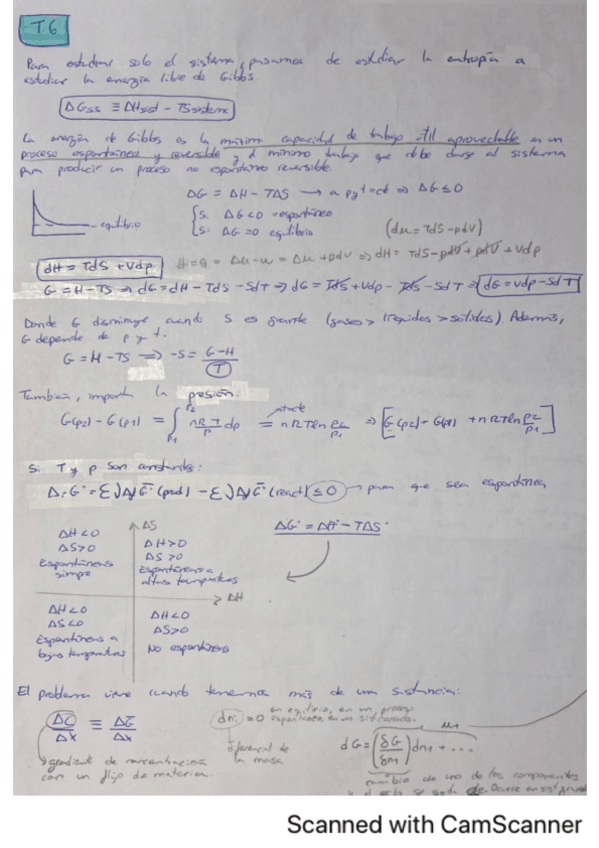 T.6
Para estudiar solo el sistema, pasamos de estudiar la entropía a
estudiar la energía libre de Gibbs.
ΔGss ≡ ΔHsist - TSsistema
La energía de Gibbs es la máxima capacidad de trabajo útil aprovechable en un
proceso espontáneo y reversible y el mínimo trabajo que debe darse al sistema
para producir un proceso no espontáneo reversible.
ΔG = ΔH - TΔS → a p y t = ct ⇒ ΔG ≤ 0
Si ΔG < 0 → espontáneo
Si ΔG = 0 equilibrio
- equilibrio
(du = TdS - pdV)
dH = TdS + Vdp
⇒ dH = TdS - pdV + pdV + Vdp
G = H - TS ⇒ dG = dH - TdS - SdT ⇒ dG = TdS + Vdp - TdS - SdT ⇒ dG = Vdp - SdT
Donde G disminuye cuando S es grande (gases > líquidos > sólidos). Además,
G depende de p y t.
G = H - TS ⇒ -S = G-H / T
También, importa la presión:
G(p2) - G(p1) = ∫ p1 p2 nRT/p dp = nRTln p2/p1 ⇒ [G(p2) - G(p1) + nRTln p2/p1]
Si T y p son constantes:
(prod) - (react) ≤ 0 → para que sea espontánea
ΔS
ΔG° = ΔH° - TΔS°
ΔH < 0
ΔS > 0
Espontáneas
siempre
ΔH > 0
ΔS > 0
Espontáneas a
altas temperaturas
ΔH
ΔH < 0
ΔS < 0
Espontáneas a
bajas temperaturas
ΔH < 0
ΔS > 0
No espontáneas
El problema viene cuando tenemos más de una sustancia:
ΔC/Δx ≡ ΔG/Δx
dni = 0
en equilibrio, en un proceso
espontáneo en un sist cerrado.
diferencial de
la masa
μ1
dG = (δG/δn1) dn1 + ...
gradiente de concentración
con un flujo de materia.
cambio de uno de los componentes
Scanned with CamScanner